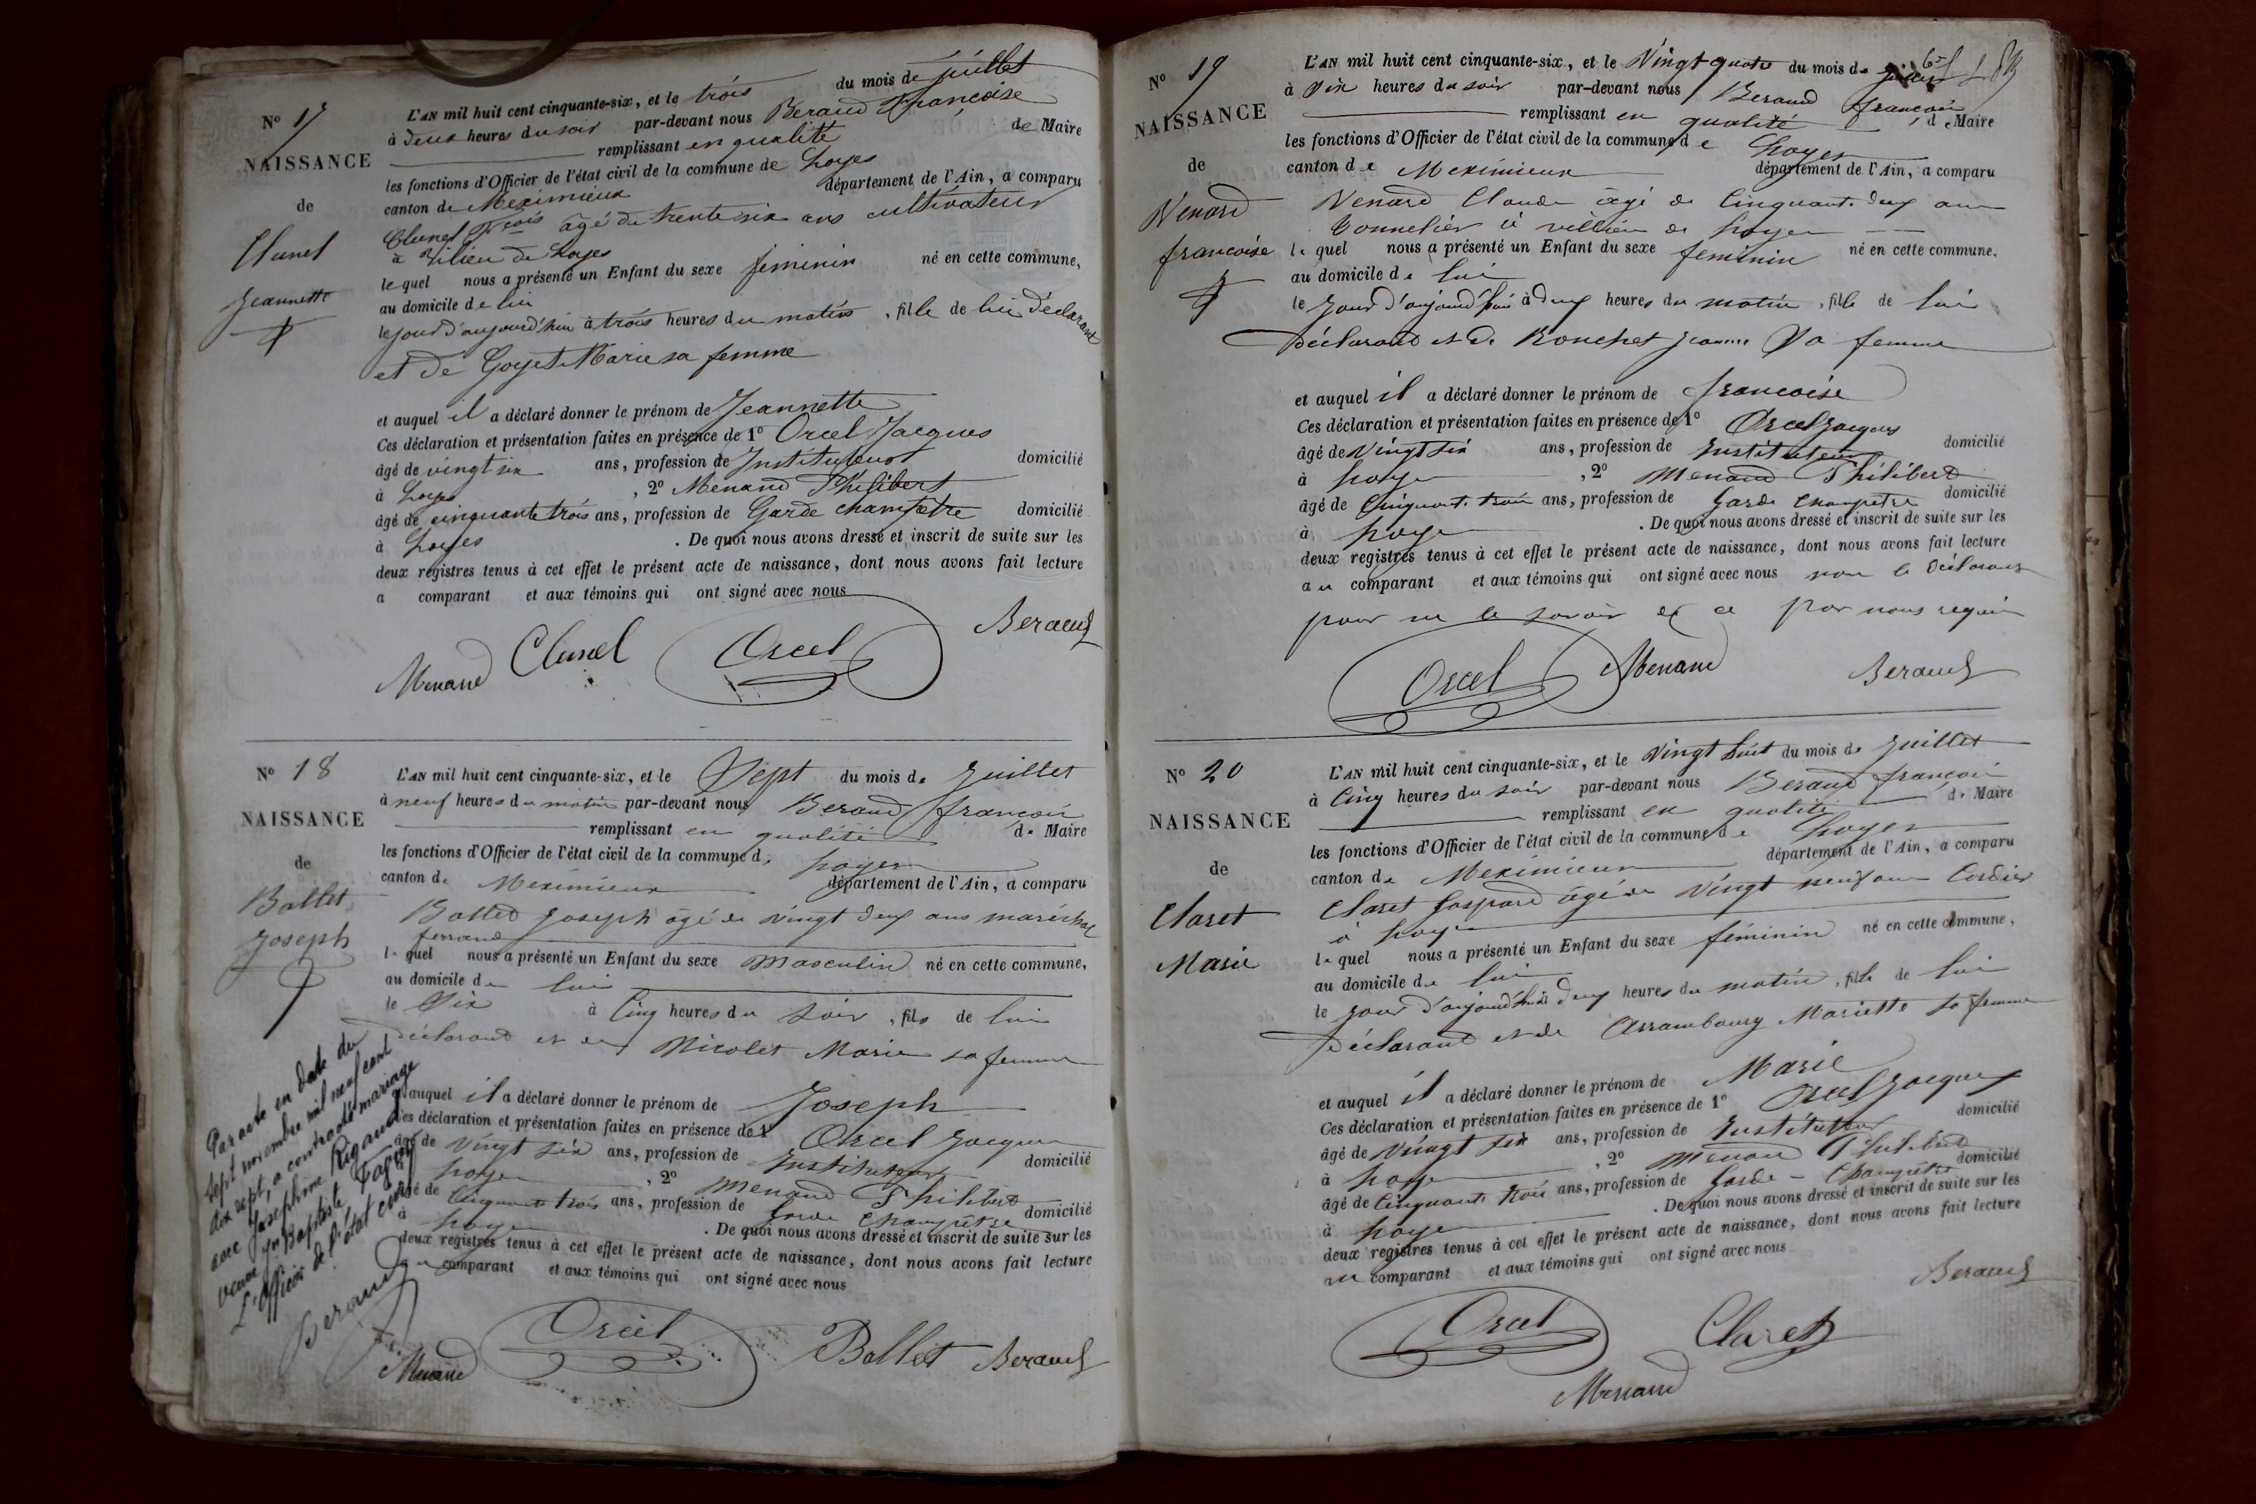 N° 17
NAISSANCE
de
Clunel
Jeannette
L'AN mil huit cent cinquante-six, et le trois du mois de juillet
à deux heures du soir par-devant nous Beraud Françoise
remplissant en qualité de Maire
les fonctions d'Officier de l'état civil de la commune de Loyes
canton de Meximieux département de l'Ain, a comparu
Clunel frois âgé de trente six ans cultivateur
à Vilieu de Loyes
lequel nous a présenté un Enfant du sexe féminin né en cette commune,
au domicile de lui
le jour d'aujourd'hui à trois heures du matin, fille de lui déclarant
et de Goyet Marie sa femme
et auquel il a déclaré donner le prénom de Jeannette
Ces déclaration et présentation faites en présence de 1° Orcel Jacques
âgé de vingt six ans, profession de Instituteur domicilié
à Loyes, 2° Menand Philibert
âgé de cinquante trois ans, profession de Garde champêtre domicilié
à Loyes. De quoi nous avons dressé et inscrit de suite sur les
deux registres tenus à cet effet le présent acte de naissance, dont nous avons fait lecture
a comparant et aux témoins qui ont signé avec nous
Beraud
Menand Clunel Orcel
N° 18
NAISSANCE
de
Ballet
Joseph
L'AN mil huit cent cinquante-six, et le Sept du mois de Juillet
à neuf heures du matin par-devant nous Beraud françois
remplissant en qualité de Maire
les fonctions d'Officier de l'état civil de la commune de Loyes
canton de Meximieux département de l'Ain, a comparu
Ballet Joseph âgé de vingt deux ans maréchal
ferrand
lequel nous a présenté un Enfant du sexe Masculin né en cette commune,
au domicile de lui
le Six à Cinq heures du soir, fils de lui
déclarand et de Nicolet Marie sa femme
et auquel il a déclaré donner le prénom de Joseph
Ces déclaration et présentation faites en présence de 1° Orcel Jacques
âgé de vingt six ans, profession de Instituteur domicilié
à Loyes, 2° Menand Philibert
âgé de Cinquante trois ans, profession de Garde Champêtre domicilié
à Loyes. De quoi nous avons dressé et inscrit de suite sur les
deux registres tenus à cet effet le présent acte de naissance, dont nous avons fait lecture
au comparant et aux témoins qui ont signé avec nous
Menand Orcel Ballet Beraud
Par acte en date du
sept novembre mil neuf cent
dix sept, a contracté mariage
avec Joséphine Rigaud
veuve Jn Baptiste
L'Officier de l'état civil
Beraud
N° 19
NAISSANCE
de
Venard
françoise
L'AN mil huit cent cinquante-six, et le Vingt quatre du mois de juillet
à Six heures du soir par-devant nous Beraud françois
remplissant en qualité de Maire
les fonctions d'Officier de l'état civil de la commune de Loyes
canton de Meximieux département de l'Ain, a comparu
Venard Claude âgé de Cinquante deux ans
Tonnelier à villieu de Loyes
lequel nous a présenté un Enfant du sexe feminin né en cette commune,
au domicile de lui
le Jour d'aujourd'hui à deux heures du matin, fille de lui
déclarand et de Ronchet Jeanne Sa femme
et auquel il a déclaré donner le prénom de françoise
Ces déclaration et présentation faites en présence de 1° Orcel Jacques
âgé de Vingt six ans, profession de Instituteur domicilié
à Loyes, 2° Menand Philibert
âgé de Cinquante trois ans, profession de Garde Champêtre domicilié
à Loyes. De quoi nous avons dressé et inscrit de suite sur les
deux registres tenus à cet effet le présent acte de naissance, dont nous avons fait lecture
au comparant et aux témoins qui ont signé avec nous non le déclarand
pour ne le savoir et ce par nous requis
Orcel Menand Beraud
N° 20
NAISSANCE
de
Claret
Marie
L'AN mil huit cent cinquante-six, et le Vingt huit du mois de Juillet
à Cinq heures du soir par-devant nous Beraud françois
remplissant en qualité de Maire
les fonctions d'Officier de l'état civil de la commune de Loyes
canton de Meximieux département de l'Ain, a comparu
Claret Gaspard âgé de vingt neuf ans Cordier
à Loyes
lequel nous a présenté un Enfant du sexe féminin né en cette commune,
au domicile de lui
le jour d'aujourd'hui deux heures du matin, fille de lui
Déclarand et de Arrambourg Mariette sa femme
et auquel il a déclaré donner le prénom de Marie
Ces déclaration et présentation faites en présence de 1° Orcel Jacques
âgé de Vingt six ans, profession de Instituteur domicilié
à Loyes, 2° Menand Philibert
âgé de Cinquante trois ans, profession de Garde-Champêtre domicilié
à Loyes. De quoi nous avons dressé et inscrit de suite sur les
deux registres tenus à cet effet le présent acte de naissance, dont nous avons fait lecture
au comparant et aux témoins qui ont signé avec nous
Beraud
Orcel Claret
Menand